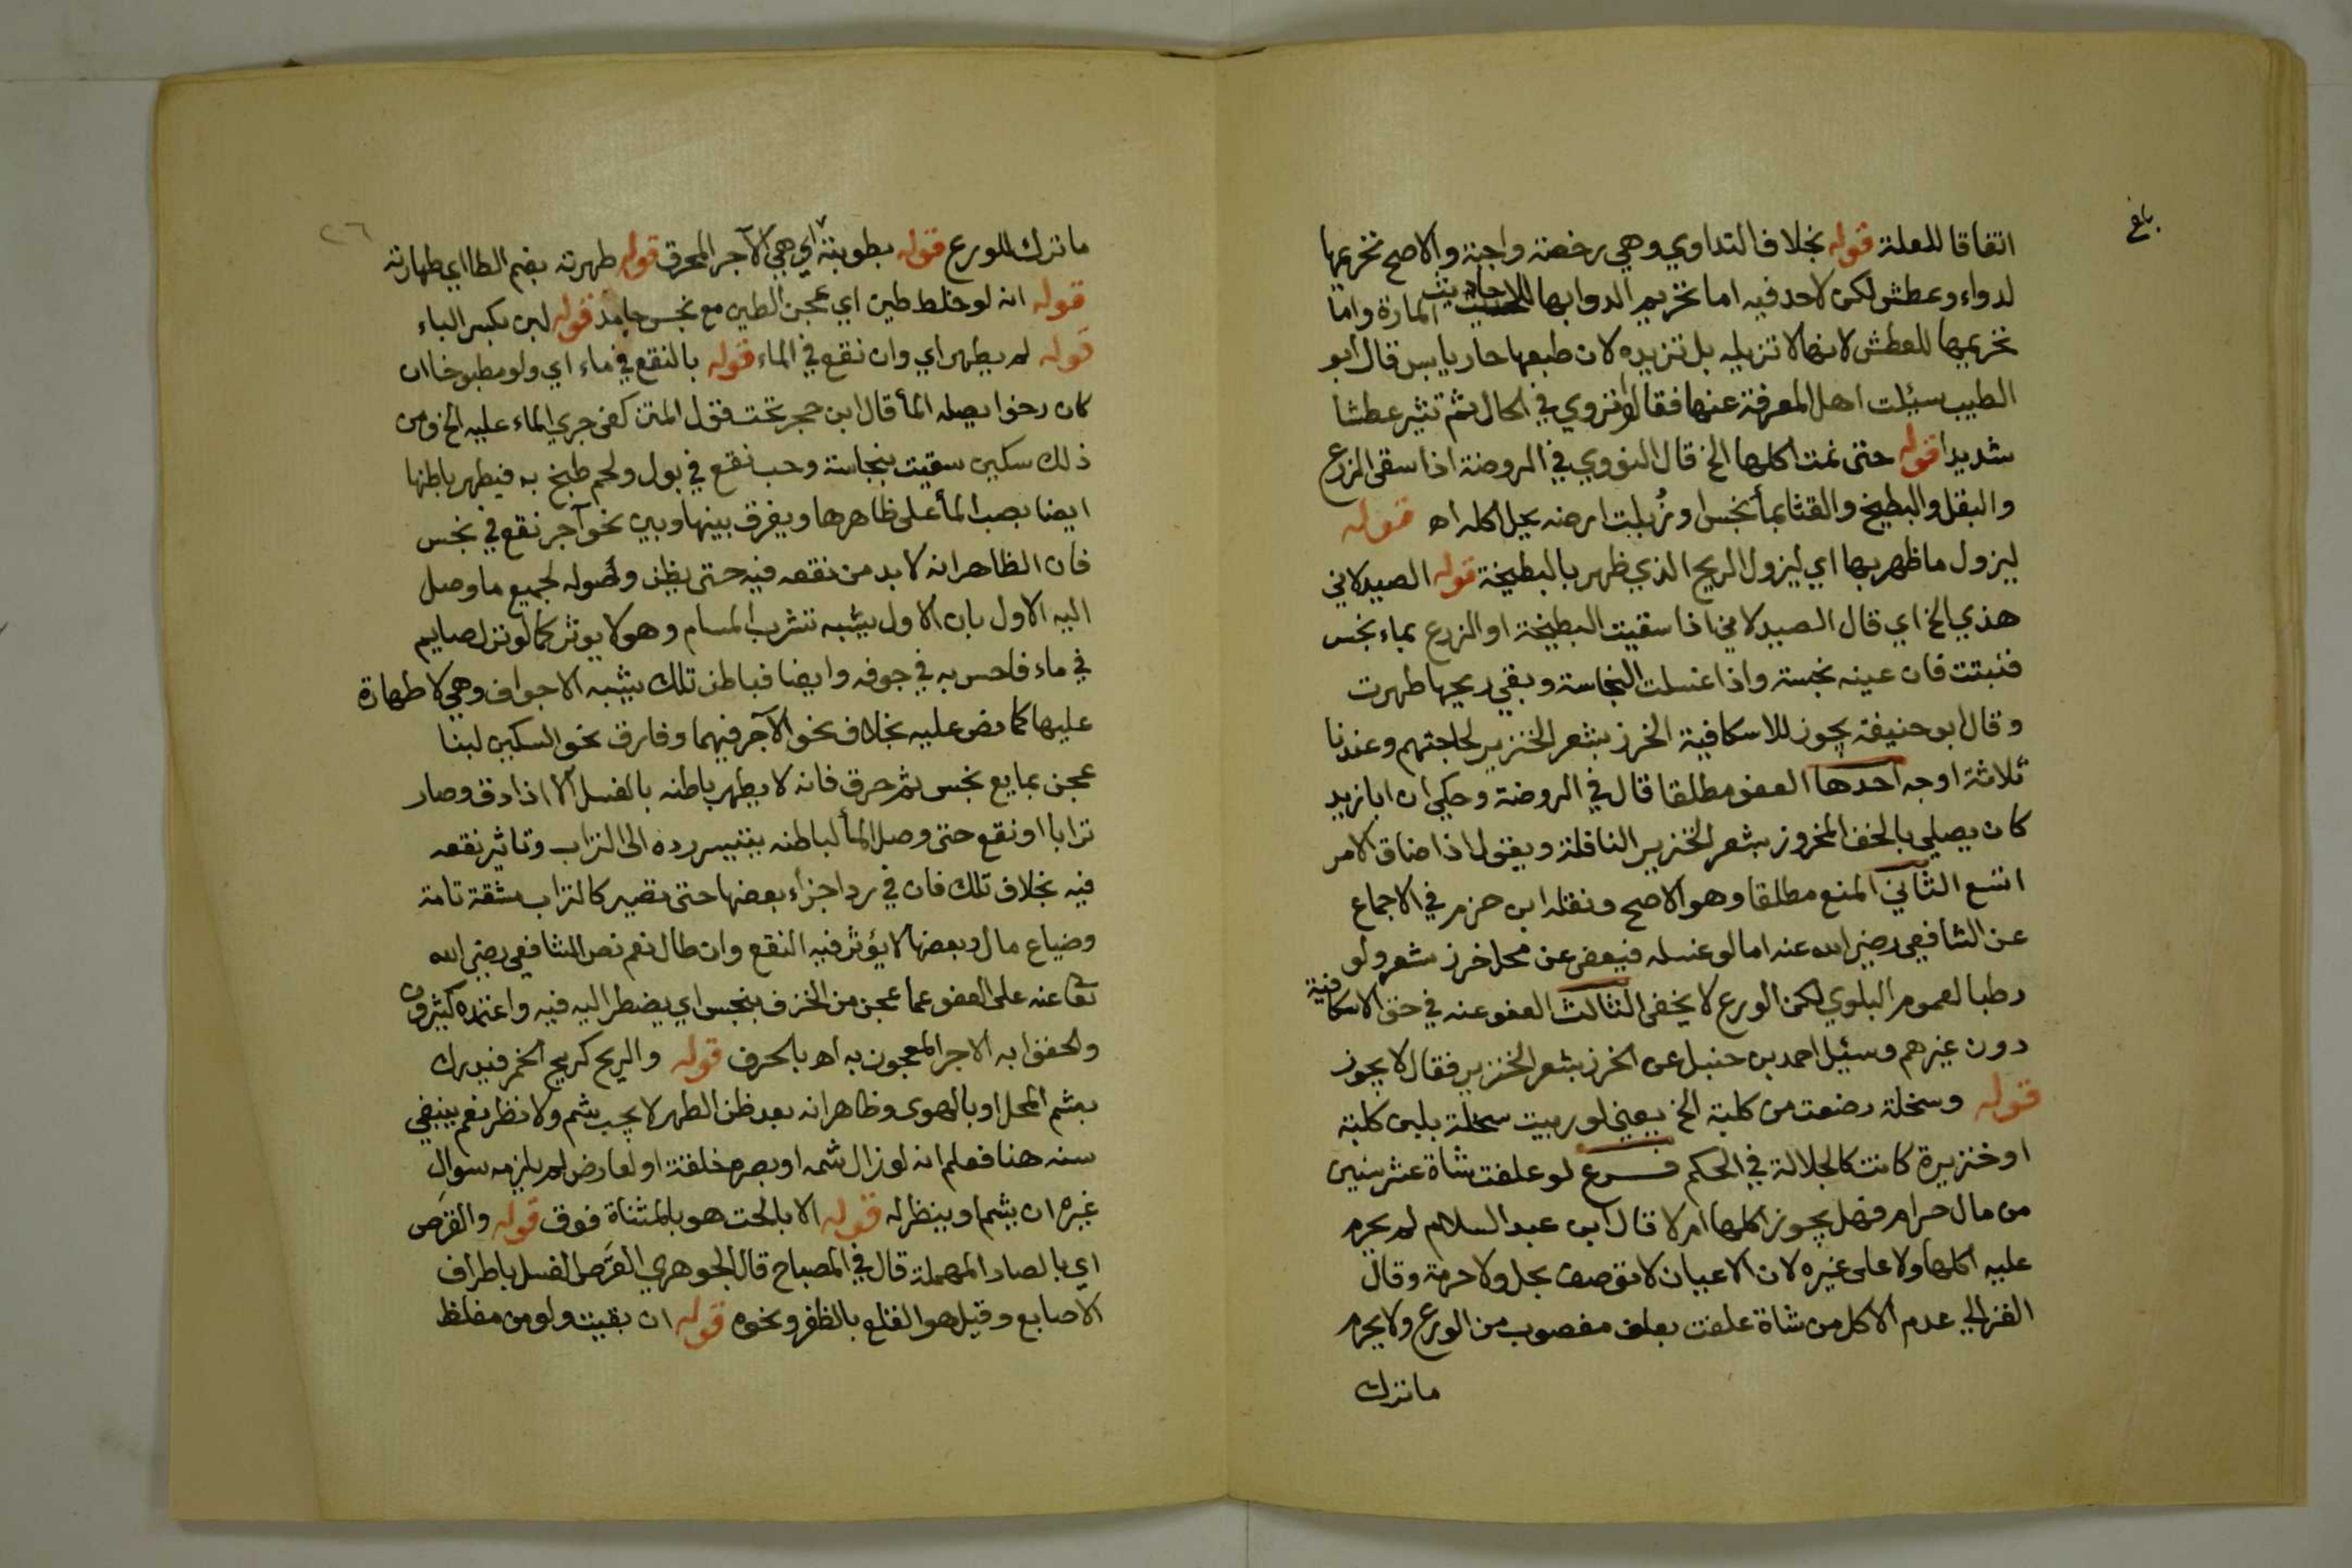 بلغ
اتفاقا للعلة قوله بخلاف التداوي وهي رخصة واجبة والاصح تحريمها
لدواء وعطش لكن لاحد فيه اما تحريم الدوابها للاحاديث المارة واما
تحريمها للعطش لانها لا تزيله بل تزيده لان طبعها حار يابس قال ابو
الطيب سئلت اهل المعرفة عنها فقالوا تروي في الحال ثم تثير عطشا
شديدا قوله حتى نمت اكلها الخ قال النووي في الروضة اذا سقى الزرع
والبقل والبطيخ والقثا بماً نجس او زُبلت ارضه يحل اكله اه قوله
ليزول ما ظهر بها اي ليزول الريح الذي ظهر بالبطيخة قوله الصيدلاني
هذي الخ اي قال الصيدلاني اذا سقيت البطيخة او الزرع بماء نجس
فنبتت فان عينه نجسة واذا غسلت النجاسة وبقي ريحها طهرت
وقال ابو حنيفة يجوز للاسكافية الخرز بشعر الخنزير لحاجتهم وعندنا
ثلاثة اوجه احدها العفو مطلقا قال في الروضة وحكي ان ابا زيد
كان يصلي بالخف المخروز بشعر الخنزير النافلة ويقول اذا ضاق الامر
اتسع الثاني المنع مطلقا وهو الاصح ونقله ابن حزم في الاجماع
عن الشافعي رضي الله عنه اما لو غسله فيعفى عن محل خرز بشعر ولو
رطبا لعموم البلوي لكن الورع لا يخفى الثالث العفو عنه في حق الاسكافية
دون غيرهم وسئيل احمد بن حنبل عن الخرز بشعر الخنزير فقال لا يجوز
قوله وسخلة رضعت من كلبة الخ يعني لو ربيت سخلة بلبن كلبة
او خنزيرة كانت كالجلالة في الحكم فرع لو علفت شاة عشر سنين
من مال حرام فهل يجوز اكلها ام لا قال ابن عبد السلام لم يحرم
عليه اكلها ولا على غيره لان الاعيان لا توصف بحل ولا حرمة وقال
الغزالي عدم الاكل من شاة علفت بعلف مغصوب من الورع ولا يحرم
ما ترك
٢٦
ما ترك للورع قوله بطوبتة اي هي الآجر المحرق قوله طهرته بضم الطا اي طهارته
قوله انه لو خلط طين اي عجن الطين مع نجس جامد قوله لبن بكسر الباء
قوله لم يطهر اي وان نقع في الماء قوله بالنقع في ماء اي ولو مطبوخا ان
كان رخوا يصله الماً قال ابن حجر تحت قول المتن كفى جري الماء عليه الخ ومن
ذلك سكين سقيت بنجاسة وحب نقع في بول ولحم طبخ به فيطهر باطنها
ايضا بصب الماً على ظاهرها ويفرق بينها وبين نحو آجر نقع في نجس
فان الظاهر انه لا بد من نقعه فيه حتى يظن وصوله لجميع ما وصل
اليه الاول بان الاول يشبه تشرب المسام وهو لا يوثر كما لو نزل صايم
في ماء فاحس به في جوفه وايضا فباطن تلك يشبه الاجواف وهي لا طهارة
عليها كما نص عليه بخلاف نحو الآجر فيهما وفارق نحو السكين لبنا
عجن بمايع نجس ثم حرق فانه لا يطهر باطنه بالغسل الا اذا دق وصار
ترابا او نقع حتى وصل الماً لباطنه بتيسر رده الى التراب وتاثير نقعه
فيه بخلاف تلك فان في رد اجزاء بعضها حتى تصير كالتراب مشقة تامة
وضياع مال وبعضها لا يؤثر فيه النقع وان طال نعم نص الشافعي رضي الله
تعا عنه على العفو عما عجن من الخزف بنجس اي يضطر اليه فيه واعتمده كثيرون
والحقوا به الاجر المعجون به اه بالحرف قوله والريح كريح الخمر فيدرك
بشم المحل او بالهوى وظاهر انه بعد ظن الطهر لا يجب شم ولا نظر نعم ينبغي
سنه هنا فعلم انه لو زال شمه او بصره خلقة او لعارض لم يلزمه سوال
غيره ان يشم او ينظر له قوله الا بالحت هو بالمثناة فوق قوله والقرص
اي بالصاد المهملة قال في المصباح قال الجوهري القرص الغسل باطراف
الاصابع وقيل هو القلع بالظفر ونحوه قوله ان بقيت ولو من مغلظ